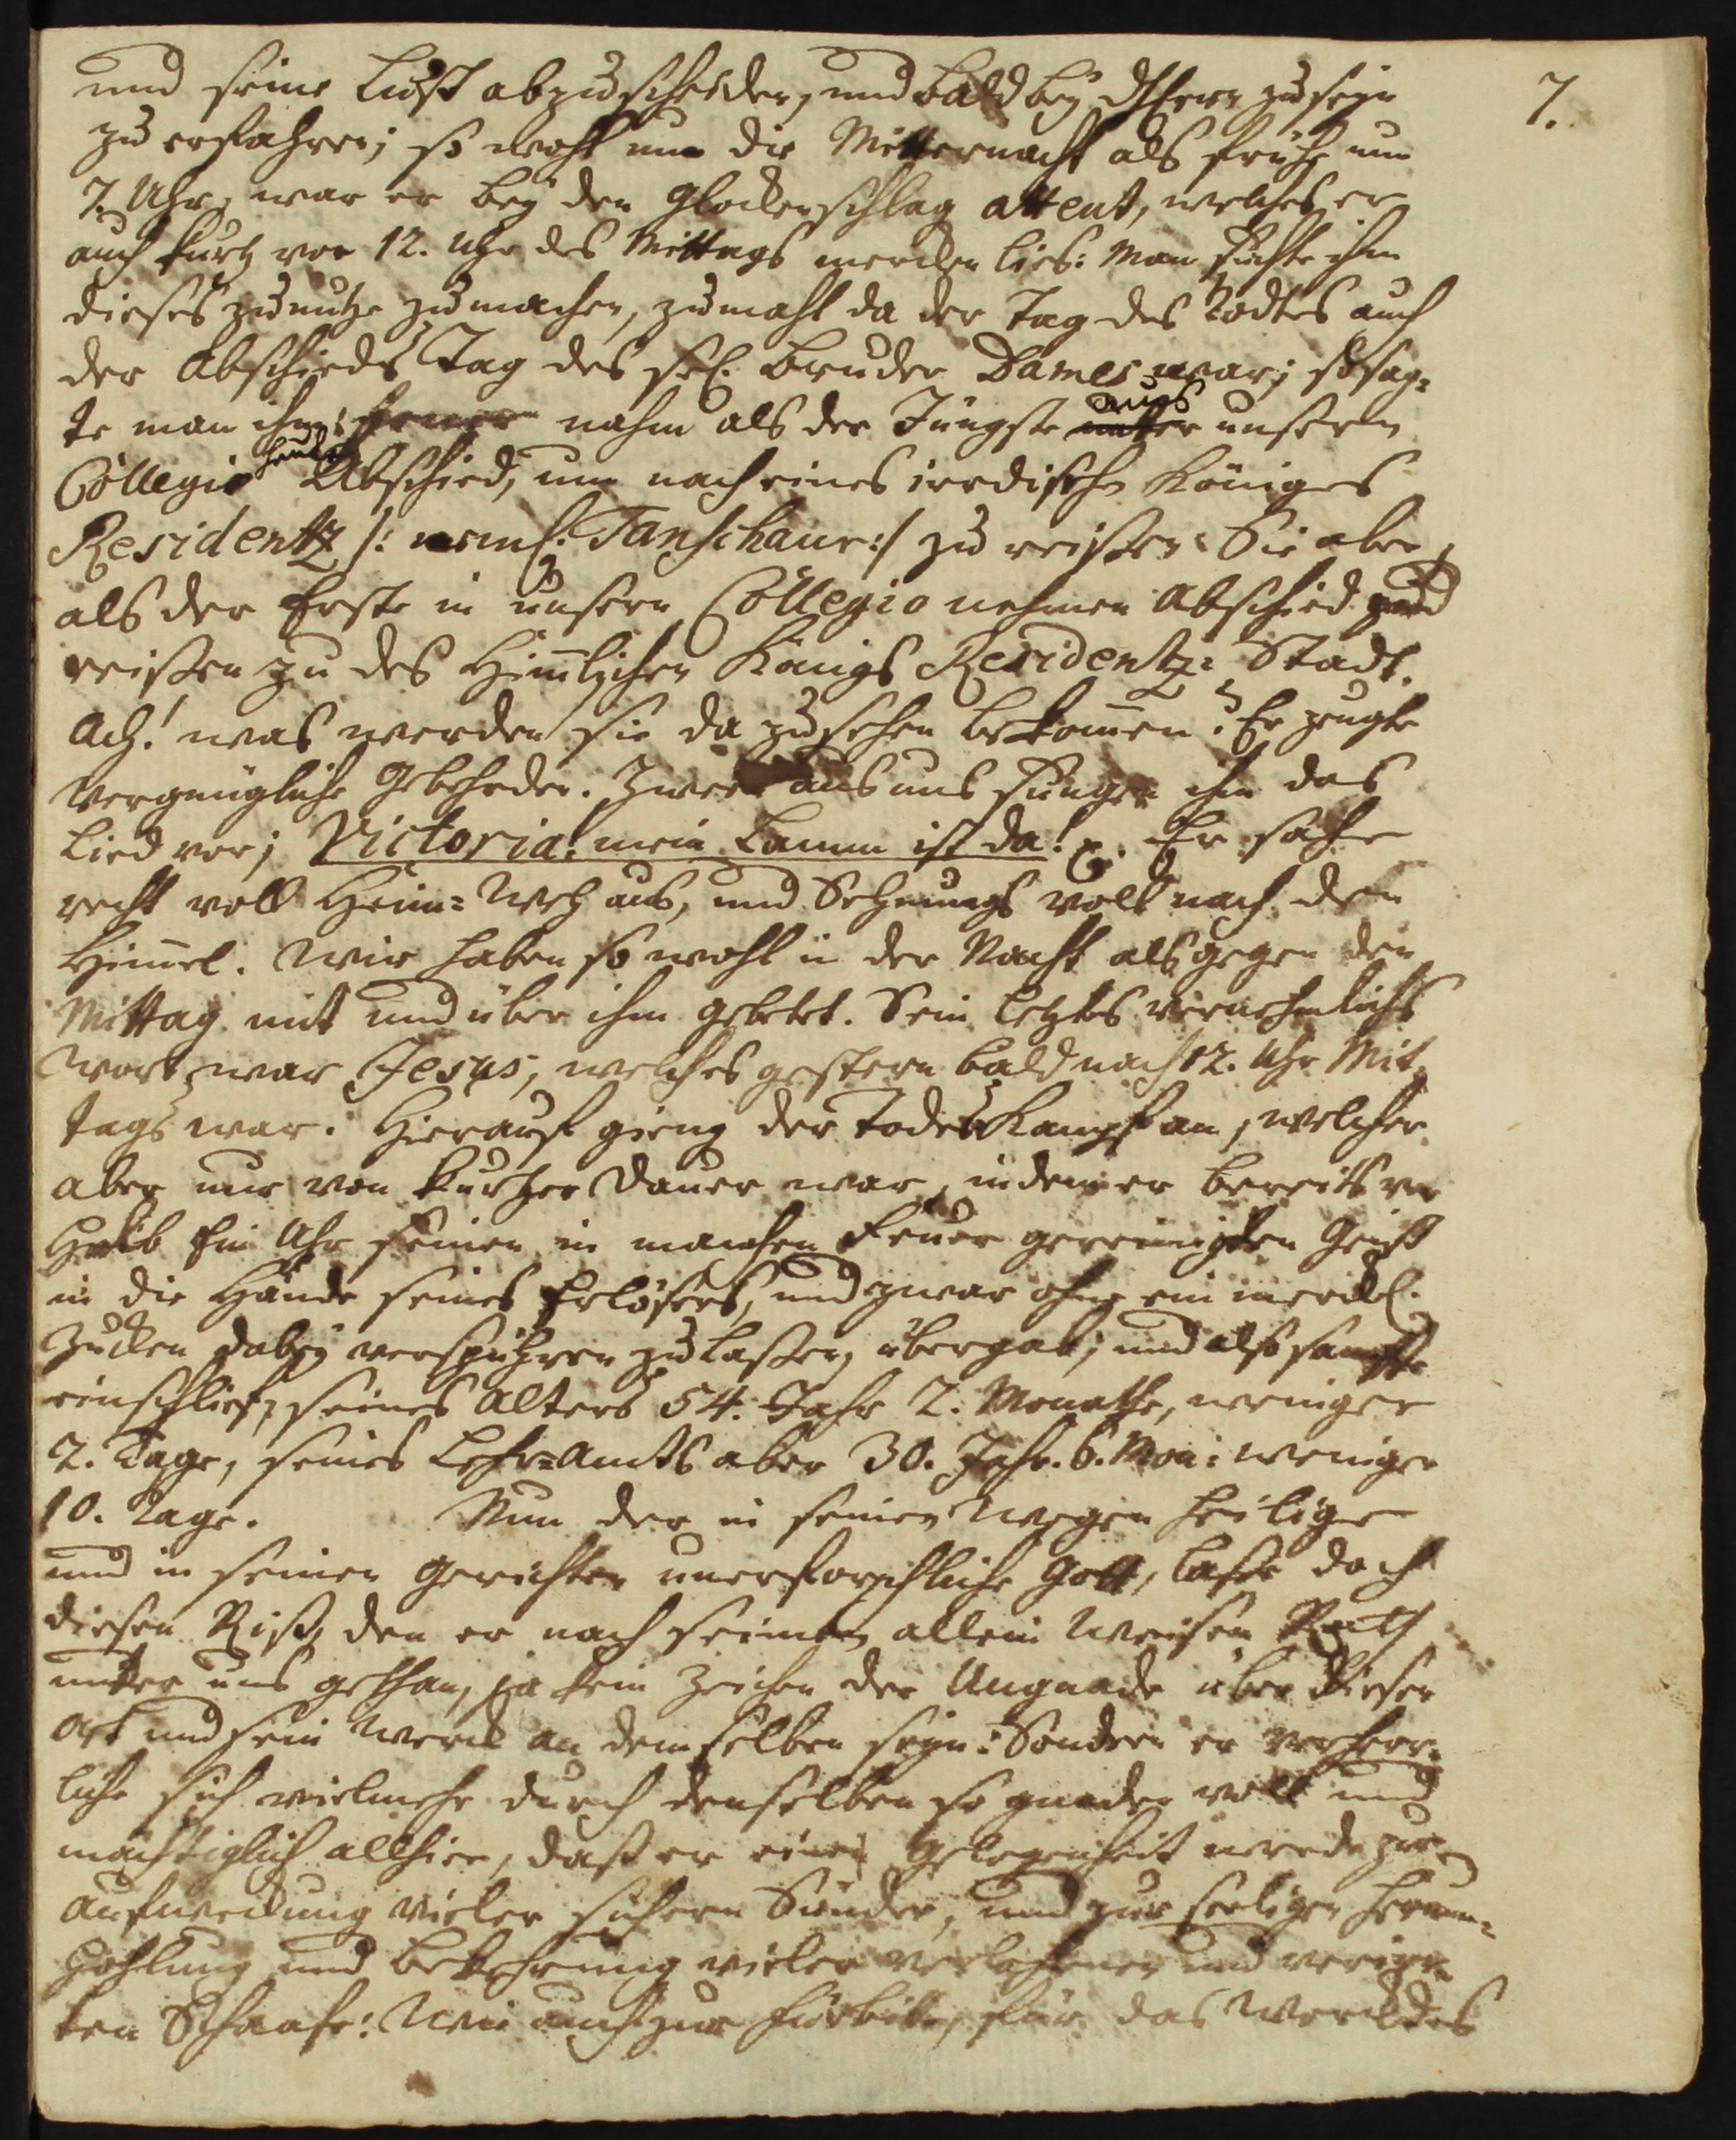 7.
und seine Lust abzuscheiden, und bald bey d. Herrn zu seyn
zu erfahren; so wohl um die Mitternacht als frühe um
7. Uhr, war er bey den Glockenschlag attent, welches er
auch kurtz vor 12. Uhr des Mittags mercken lies: Man suchte ihm
dieses zu nutze zu machen, zumahl da der Tag des Todtes auch
der Abschieds Tag des sel. Bruder Dames war; so sag-
te man ihm: nahm als der Jüngste unter aus unsern
Collegio heute Abschied, um nach eines irrdischen Königes
Residentz /: neml. Tanschaur :/ zu reisen: Sie aber,
als der Erste in unsern Collegio nehmen Abschied und
reisen zu des Himlischen Königs Residentz-Stadt.
Ach! was werden sie da zu sehen bekomen? Er zeugte
vergnügliche Geberden. Zwei aus uns sungen ihm das
Lied vor; Victoria! mein Lamm ist da! Er sahe
recht voll Heim-Weh aus, und Sehnungs voll nach den
Himel. Wir haben so wohl in der Nacht als gegen den
Mittag mit und über ihm gebetet. Sein letztes vernehmliches
Wort war Jesus, welches gestern bald nach 12. Uhr Mit-
tags war. Hierauf gieng der Todes Kampf an, welcher
aber nur von kurtzer Dauer war, indem er bereits vor
Halb Ein Uhr seinen in manchen Feuer gereinigten Geist
in die Hände seines Erlösers, und zwar ohne ein merckl.
Zucken dabey verspühren zu lassen, übergab; und also sanffte
einschlief, seines Alters 54. Jahr 2. Monathe, weniger
2. Tage, seines Lehr-Amts aber 30. Jahr. 6. Mon: weniger
10. Tage. Nun der in seinen Wegen heilige
und in seinen Gerichten unerforschliche Gott, lasse doch
diesen Riß, den er nach seinem allein weisen Rath
unter uns gethan, ja kein Zeichen der Ungnade über diesen
Ort und sein Werck an demselben seyn: Sondern er verherr-
liche sich vielmehr durch denselben so gnaden voll und
mächtiglich allhier, daß er eine Gelegenheit werde zur
Aufweckung vieler sichern Sünder, und zur seeligen herum-
hohlung und Bekehrung vieler verlohrnen und verirr-
ten Schaafe: Wie auch zur Fürbitte, für das Werck des